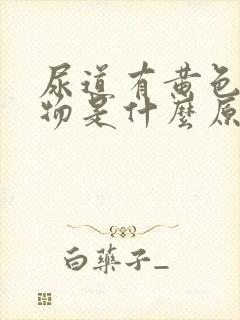 尿道有黄色
物是什麼原
白藥子_